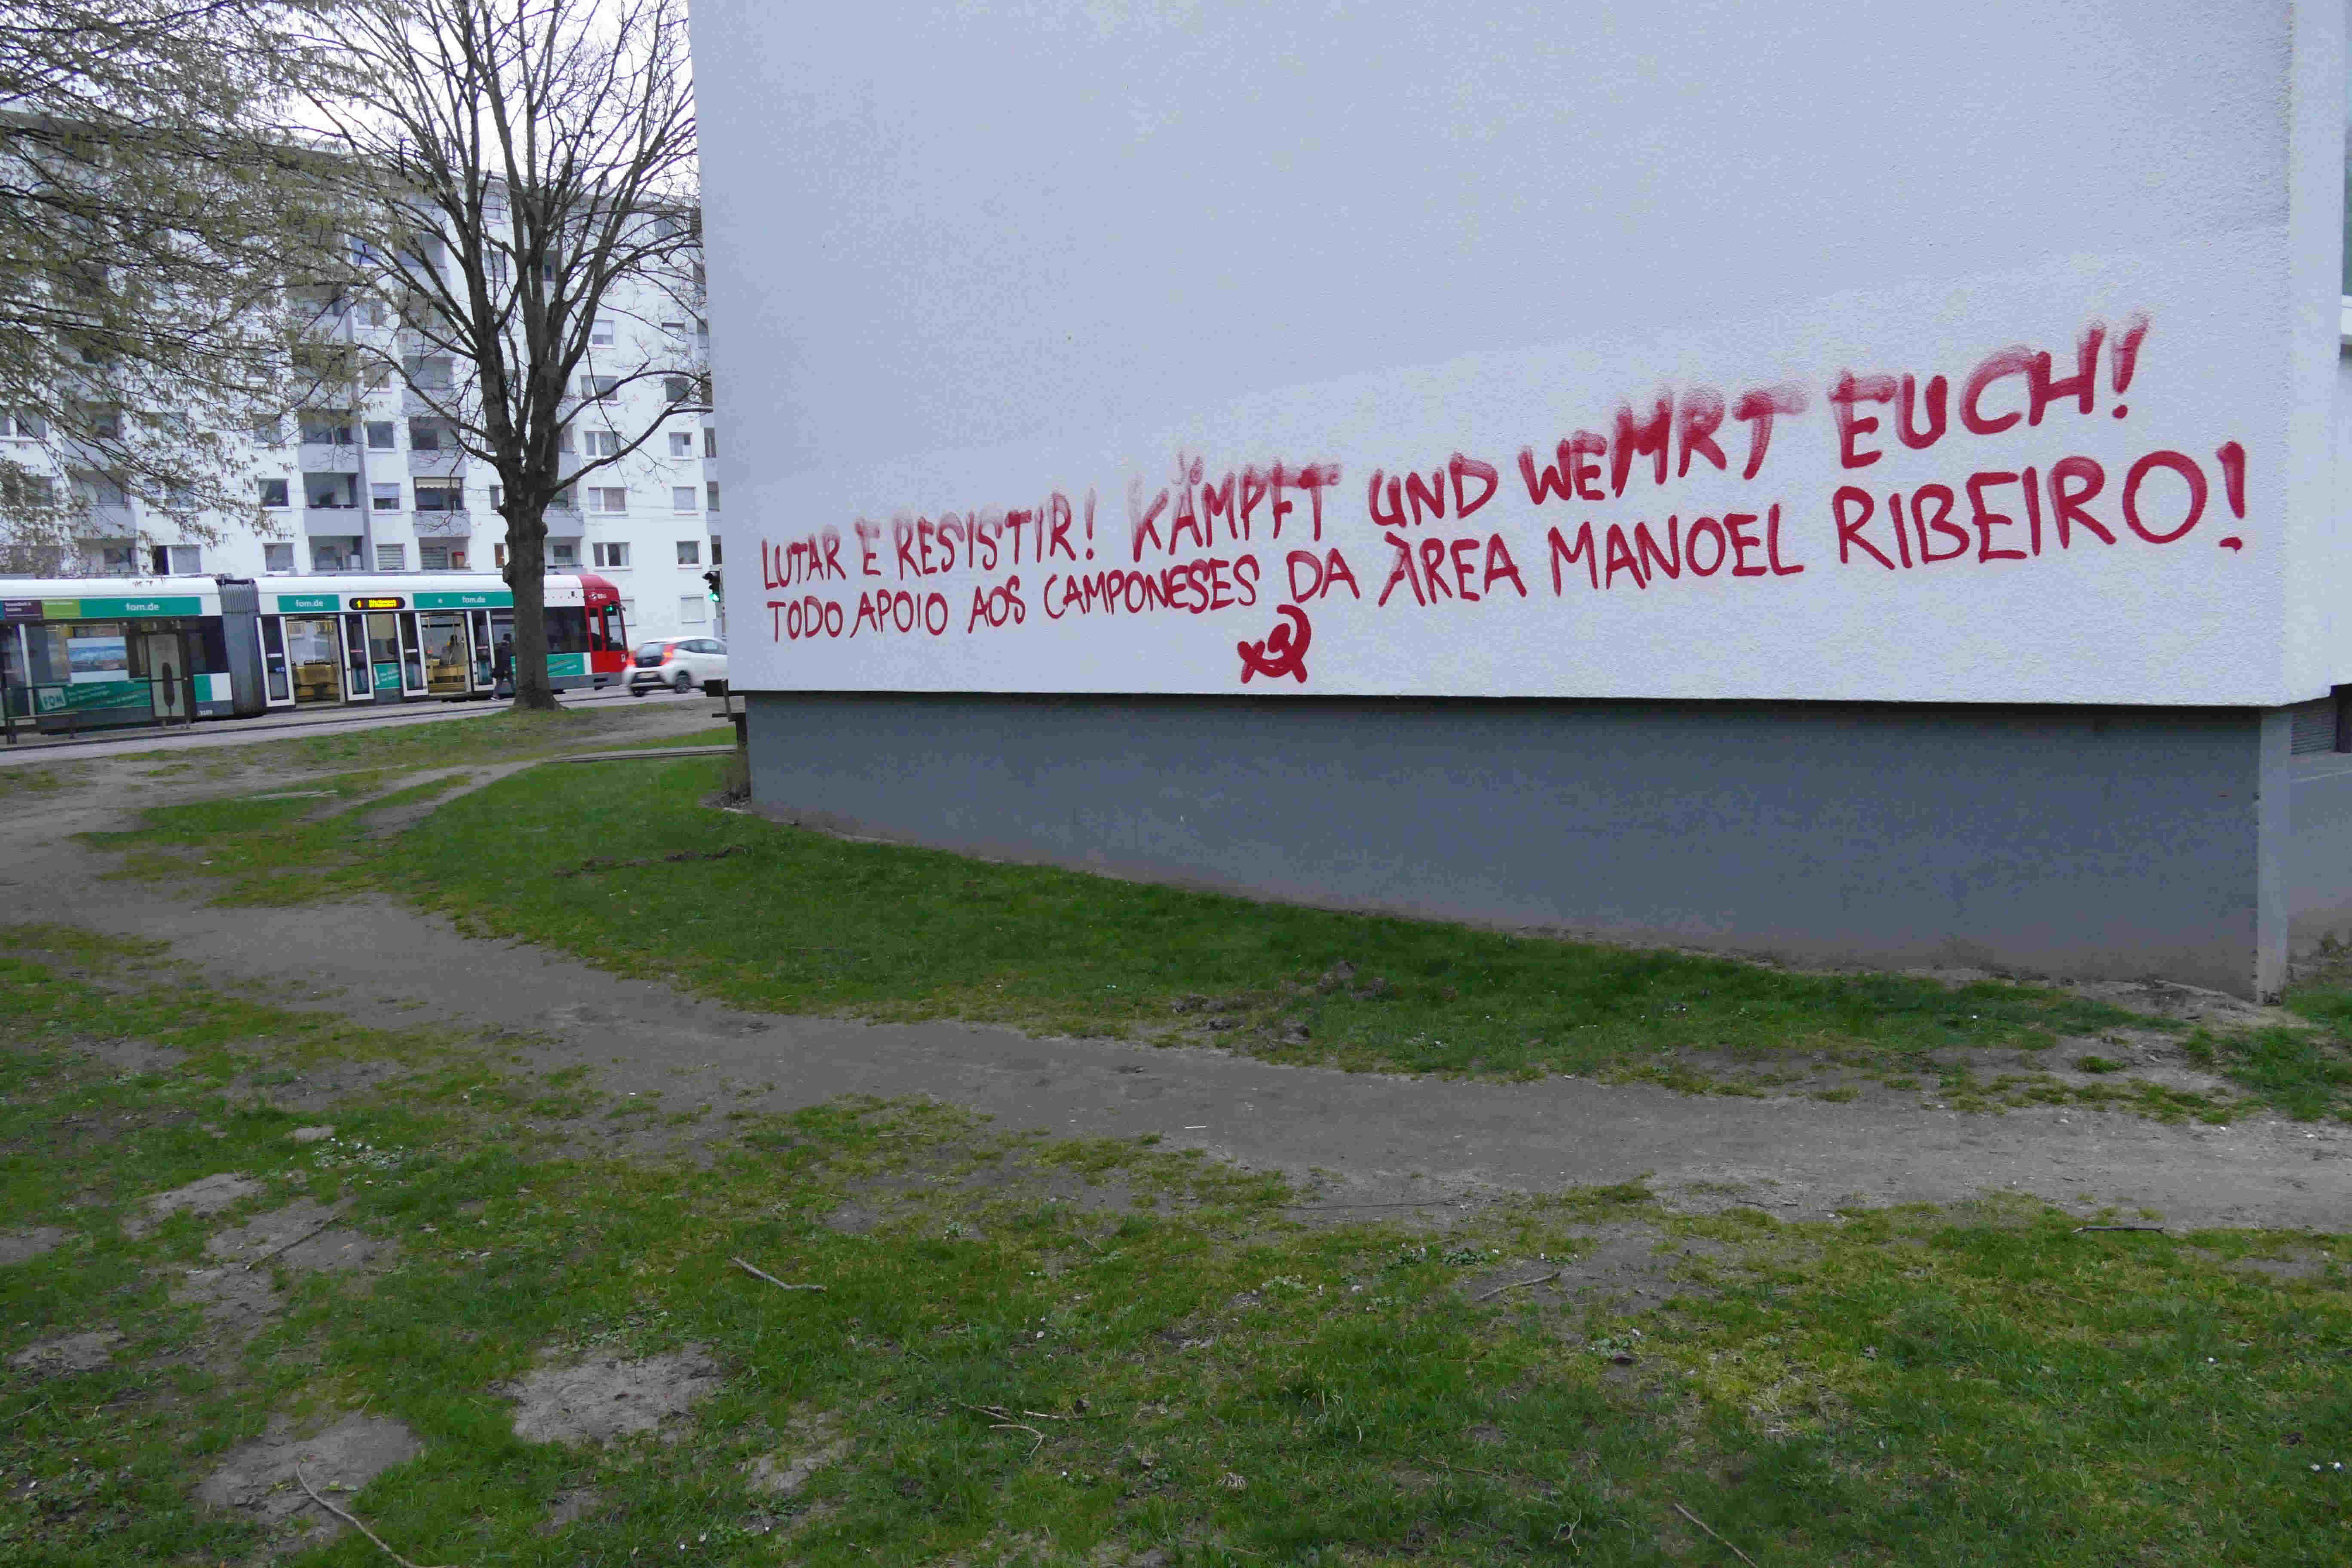 LUTAR E RESISTIR! KÄMPFT UND WEHRT EUCH!
TODO APOIO AOS CAMPONESES DA ÀREA MANOEL RIBEIRO!
fom.de
fom.de
1
fom.de
FOM